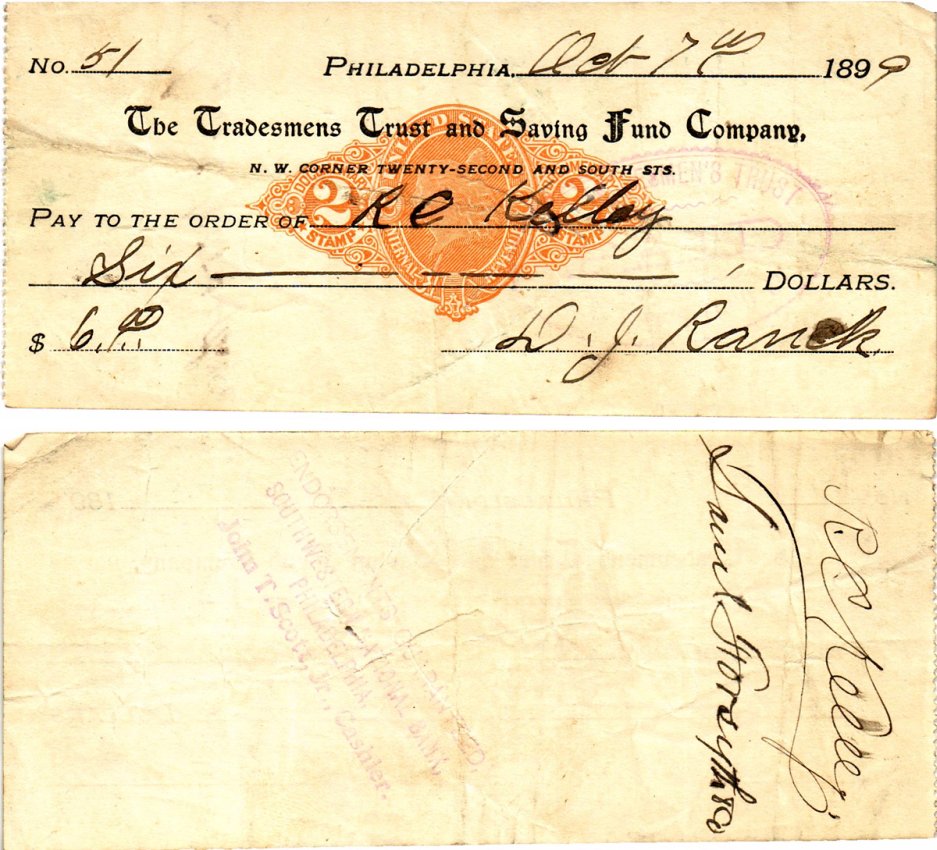 No. 51 PHILADELPHIA, Oct 7th 1899
The Tradesmens Trust and Saving Fund Company,
N. W. CORNER TWENTY-SECOND AND SOUTH STS.
UNITED STATES
2 2
STAMP STAMP
INTERNAL REVENUE
MEN'S TRUST
PAY TO THE ORDER OF R C Kelley
Six DOLLARS.
$ 6.00 D. J. Ranck
ENDORSEMENTS GUARANTEED,
SOUTHWESTERN NATIONAL BANK,
PHILADELPHIA.
John T. Scott, Jr., Cashier.
Saml Forsyth & Co
R C Kelley